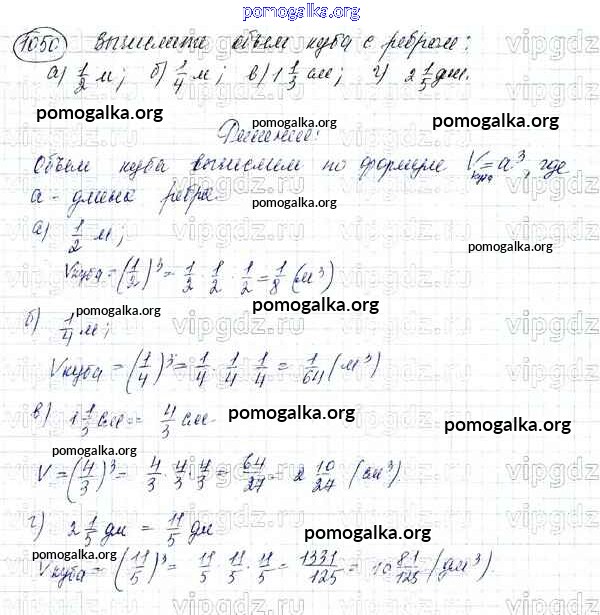 pomogalka.org
1050 Вычислите объем куба с ребром:
а) 1/2 м; б) 1/4 м; в) 1 1/3 см; г) 2 1/5 дм.
pomogalka.org pomogalka.org
Решение:
Объем куба вычислим по формуле Vкуба = a³, где
a - длина ребра.
pomogalka.org
а) 1/2 м;
pomogalka.org
Vкуба = (1/2)³ = 1/2 · 1/2 · 1/2 = 1/8 (м³)
pomogalka.org
б) 1/4 м;
pomogalka.org
Vкуба = (1/4)³ = 1/4 · 1/4 · 1/4 = 1/64 (м³)
в) 1 1/3 см = 4/3 см.
pomogalka.org
pomogalka.org
V = (4/3)³ = 4/3 · 4/3 · 4/3 = 64/27 = 2 10/27 (см³).
г) 2 1/5 дм = 11/5 дм
pomogalka.org
pomogalka.org
Vкуба = (11/5)³ = 11/5 · 11/5 · 11/5 = 1331/125 = 10 81/125 (дм³)
pomogalka.org
vipgdz.ru